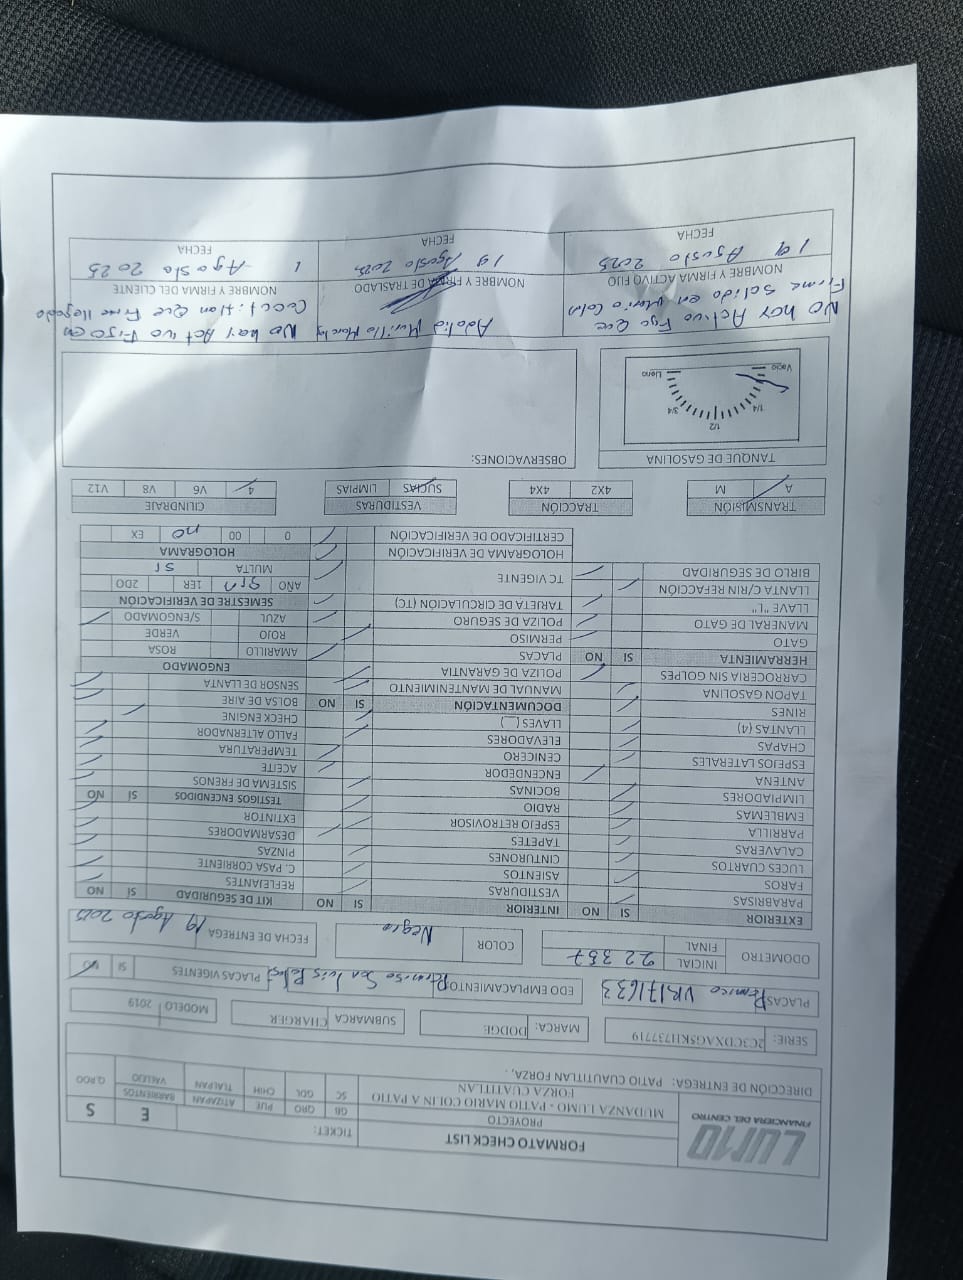 LUMO
FINANCIERA DEL CENTRO
FORMATO CHECK LIST
TICKET:
E
S
PROYECTO
MUDANZA LUMO - PATIO MARIO COLIN A PATIO FORZA CUATITLAN
GB QRO PUE ATIZAPAN BARRIENTOS Q.ROO
SC GDL CHIH TLALPAN VALLEJO
DIRECCIÓN DE ENTREGA: PATIO CUAUTITLAN FORZA, .
SERIE: 2C3CDXAG5KH737719
MARCA: DODGE
SUBMARCA CHARGER
MODELO 2019
PLACAS Permiso
EDO EMPLACAMIENTO Permiso San Luis
PLACAS VIGENTES SI NO
ODOMETRO INICIAL 22357
FINAL
COLOR Negro
FECHA DE ENTREGA 19 Agosto 2025
EXTERIOR SI NO
PARABRISAS
FAROS
LUCES CUARTOS
CALAVERAS
PARRILLA
EMBLEMAS
LIMPIADORES
ANTENA
ESPEJOS LATERALES
CHAPAS
LLANTAS (4)
RINES
TAPON GASOLINA
CARROCERIA SIN GOLPES
HERRAMIENTA SI NO
GATO
MANERAL DE GATO
LLAVE "L"
LLANTA C/RIN REFACCIÓN
BIRLO DE SEGURIDAD
INTERIOR SI NO
VESTIDURAS
ASIENTOS
CINTURONES
TAPETES
ESPEJO RETROVISOR
RADIO
BOCINAS
ENCENDEDOR
CENICERO
ELEVADORES
LLAVES (__)
DOCUMENTACIÓN SI NO
MANUAL DE MANTENIMIENTO
POLIZA DE GARANTIA
PLACAS
PERMISO
POLIZA DE SEGURO
TARJETA DE CIRCULACIÓN (TC)
TC VIGENTE
HOLOGRAMA DE VERIFICACIÓN
CERTIFICADO DE VERIFICACIÓN
KIT DE SEGURIDAD SI NO
REFLEJANTES
C. PASA CORRIENTE
PINZAS
DESARMADORES
EXTINTOR
TESTIGOS ENCENDIDOS SI NO
SISTEMA DE FRENOS
ACEITE
TEMPERATURA
FALLO ALTERNADOR
CHECK ENGINE
BOLSA DE AIRE
SENSOR DE LLANTA
ENGOMADO
AMARILLO ROSA
ROJO VERDE
AZUL S/ENGOMADO
SEMESTRE DE VERIFICACIÓN
AÑO 1ER 2DO
MULTA
HOLOGRAMA
0 00 no EX
TRANSMISIÓN
A M
TRACCIÓN
4X2 4X4
VESTIDURAS
SUCIAS LIMPIAS
CILINDRAJE
4 V6 V8 V12
TANQUE DE GASOLINA
Vacio 1/4 1/2 3/4 Lleno
OBSERVACIONES:
NO hay Activo Fijo Que
Firme Salida en Mario Coln
NOMBRE Y FIRMA ACTIVO FIJO
19 Agosto 2025
FECHA
Adalid Murillo
NOMBRE Y FIRMA DE TRASLADO
19 Agosto 2025
FECHA
No hay Activo Fijo en
Que Firme llegada
NOMBRE Y FIRMA DEL CLIENTE
1 Agosto 2025
FECHA